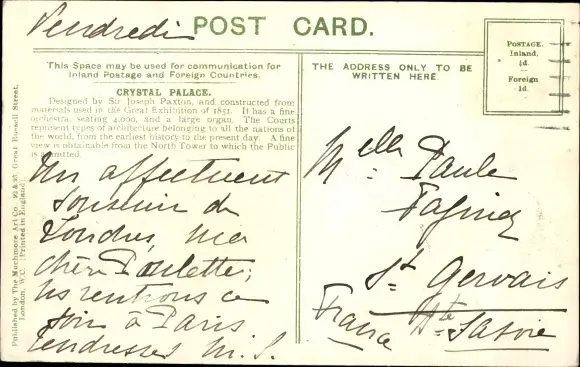 Vendredi
POST CARD.
This Space may be used for communication for
Inland Postage and Foreign Countries.
THE ADDRESS ONLY TO BE
WRITTEN HERE
POSTAGE.
Inland,
½d.
Foreign
1d.
CRYSTAL PALACE.
Designed by Sir Joseph Paxton, and constructed from
materials used in the Great Exhibition of 1851. It has a fine
orchestra, seating 4,000, and a large organ. The Courts
represent types of architecture belonging to all the nations of
the world, from the earliest history to the present day. A fine
view is obtainable from the North Tower to which the Public
is admitted.
Un affectueux
souvenir de
Londres, ma
chère Paulette,
ns rentrons ce
soir à Paris
Tendresses M. S.
Melle Paule
St Gervais
Hte Savoie
France
Published by The Mechmore Art Co., Great Russell Street,
London, W.C. (Printed in England)